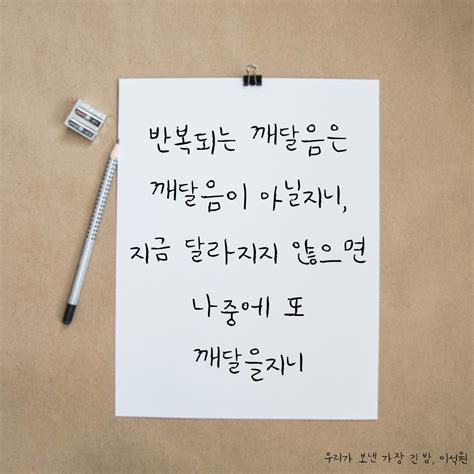 반복되는 깨달음은
깨달음이 아닐지니,
지금 달라지지 않으면
나중에 또
깨달을지니
우리가 보낸 가장 긴 밤, 이석원